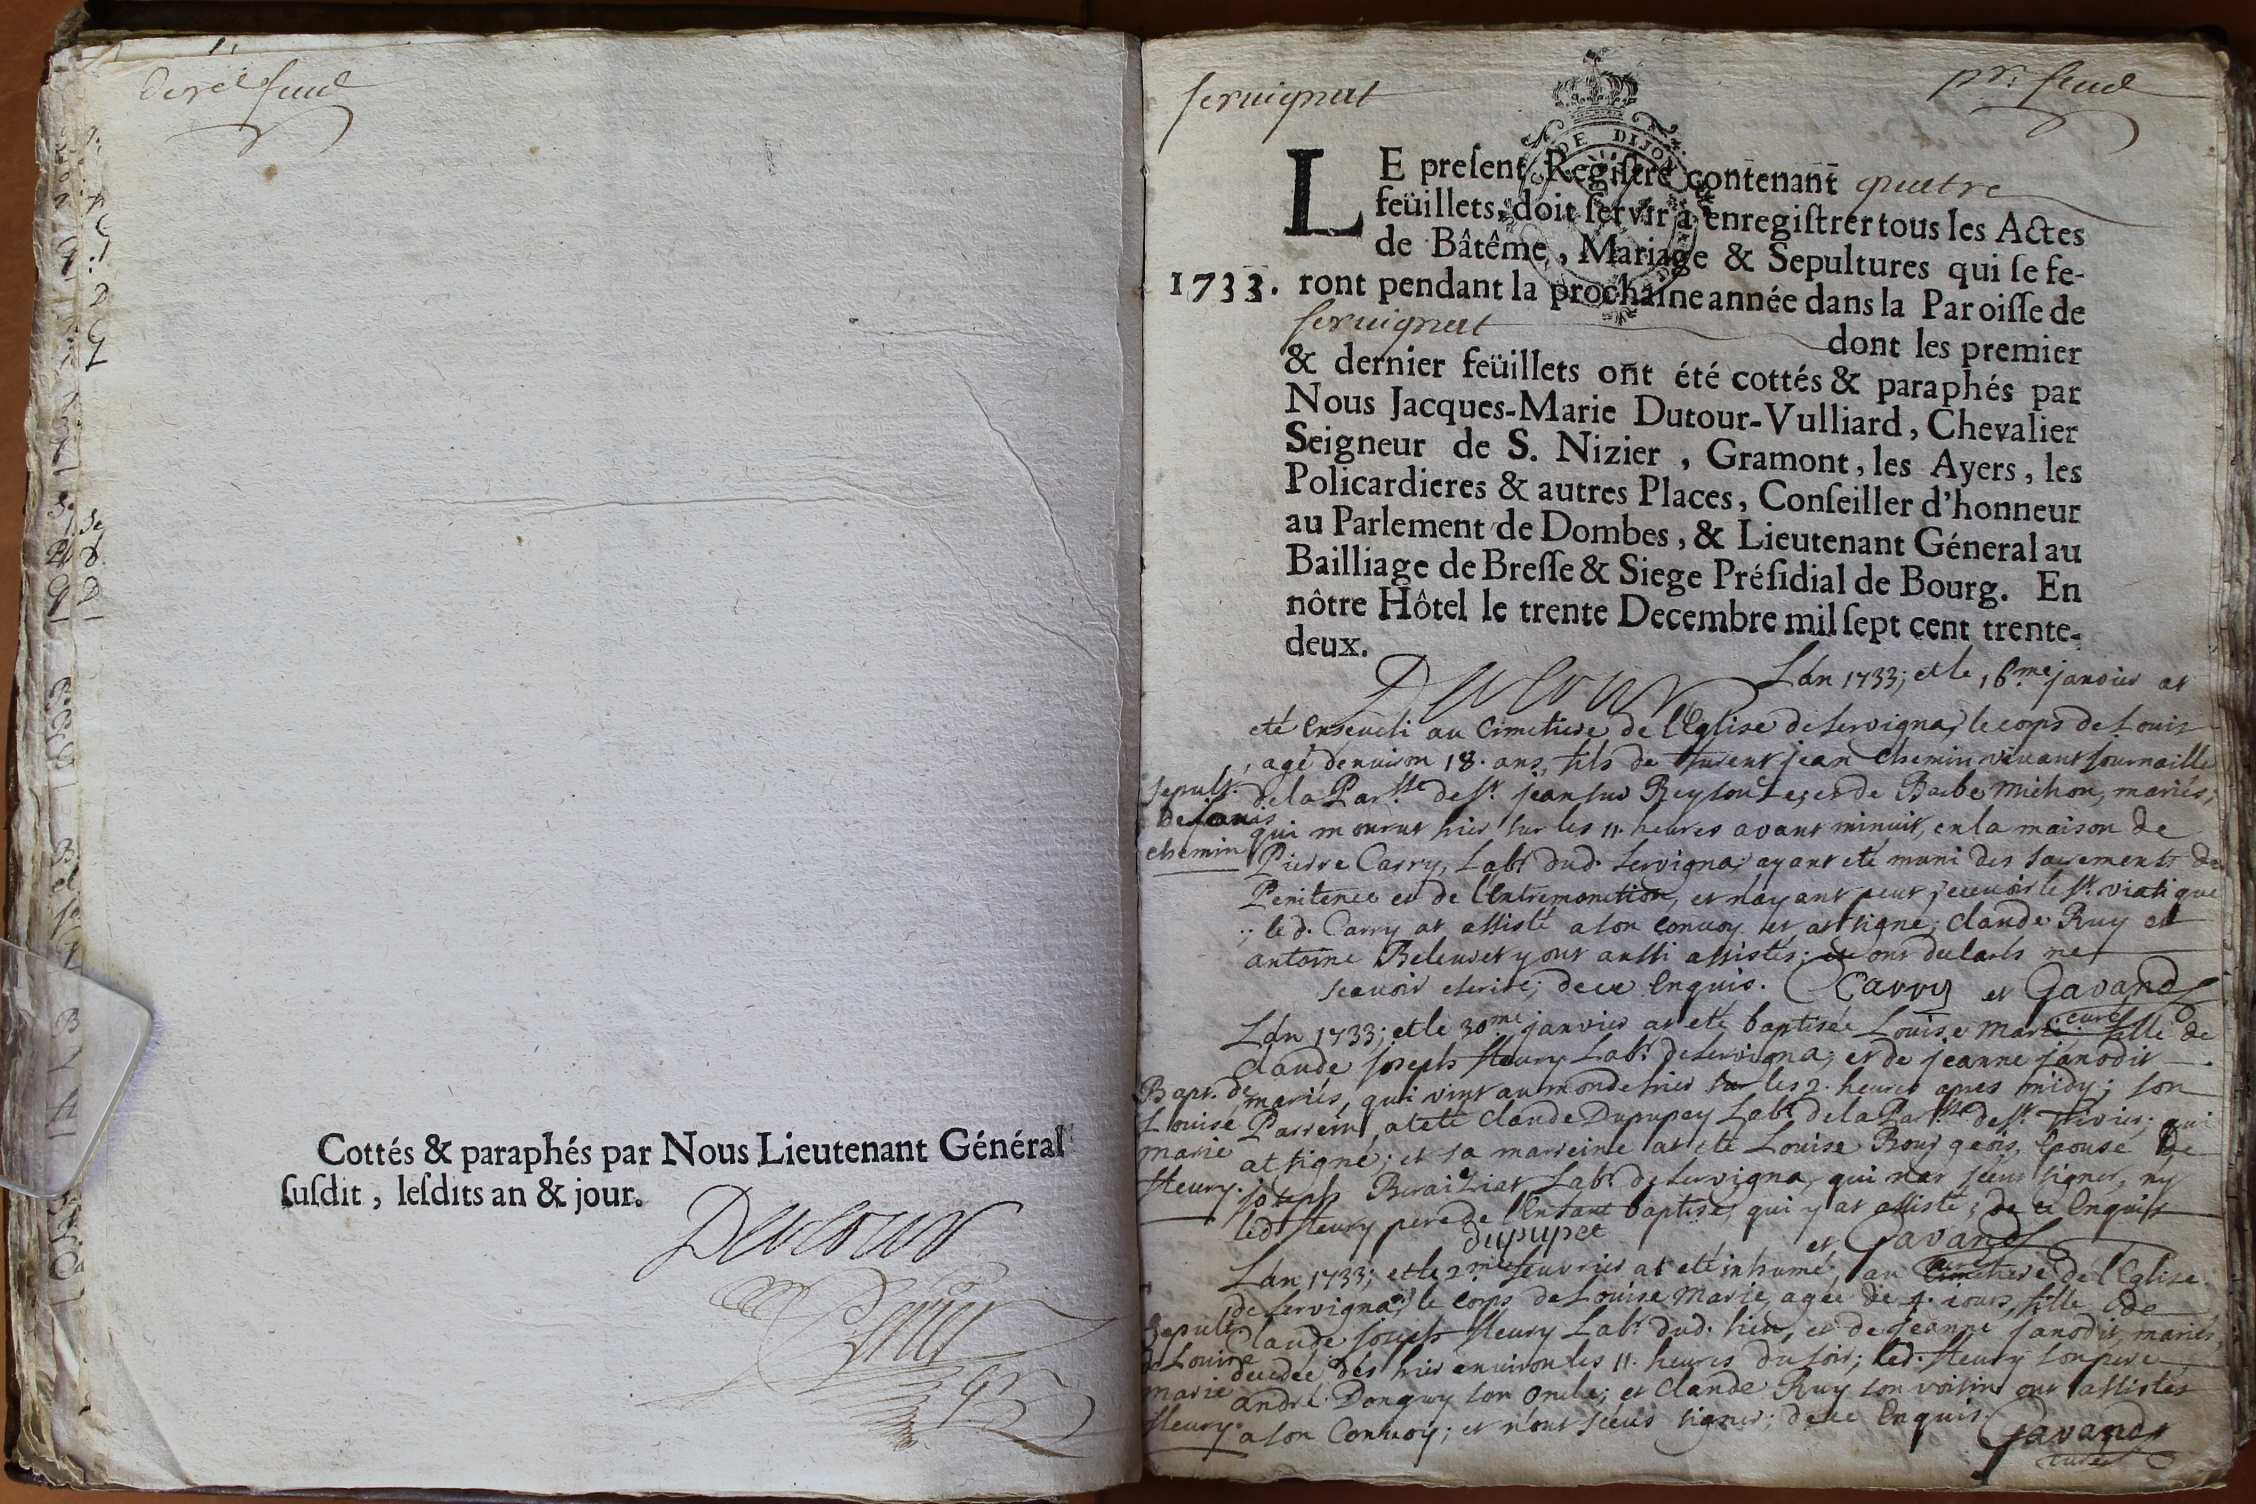 feuil
Cottés & paraphés par Nous Lieutenant Général
ſuſdit, leſdits an & jour.
Dutour
servignat
pr. feuil
DE DIJON
LE preſent Regiſtre contenant quatre
feüillets, doit ſervir à enregiſtrer tous les Actes
de Bâtême, Mariage & Sepultures qui ſe fe-
1733. ront pendant la prochaine année dans la Paroiſſe de
servignat dont les premier
& dernier feüillets ont été cottés & paraphés par
Nous Jacques-Marie Dutour-Vulliard, Chevalier
Seigneur de S. Nizier, Gramont, les Ayers, les
Policardieres & autres Places, Conſeiller d'honneur
au Parlement de Dombes, & Lieutenant Géneral au
Bailliage de Breſſe & Siege Préſidial de Bourg. En
nôtre Hôtel le trente Decembre mil ſept cent trente-
deux.
Dutour
Lan 1733; et le 16.me janvier at
eté Enseveli au Cimetiere de l'Eglise de Servigna, le corps de Louis
, agé denviron 18. ans, fils de jean Chemin vivant
Sepult. de la Par.sse de st. jean sur Reysouze; et de Barbe Michon, mariés;
de Louis qui mourut hier sur les 11. heures avant minuit, en la maison de
chemin Pierre Carry, Labr. dud. Servigna, ayant eté muni des sacrements de
Penitence et de l'Extremonction, et n'ayant peut recevoir le st. viatique
; led. Carry at assisté a son convoy et at signé; Claude Ruy et
antoine y ont aussi assistés; et ont declarés ne
scavoir escrire; de ce Enquis. Carry et Gavand
curé
Lan 1733; et le 30.me janvier at eté baptisée Louise Marie fille de
Claude joseph fleury Labr. de Servigna, et de jeanne janodit
Bapt. de mariés, qui vint au monde hier sur les 2. heures apres midy; son
Louise Parrein, at eté Claude Dupupey Labr. de la Par.sse de st. trivier; qui
marie at signé; et sa marreine at eté Louise Bourgeois, Epouse de
fleury. joseph Labr. de Servigna, qui n'at sceut signer, ny
led. fleury pere de l'Enfant baptisé, qui y at assisté; de ce Enquis
dupupet et Gavand
curé
Lan 1733; et le 2.me feuvrier at eté inhumé, au Cimetiere de l'Eglise
de Servigna, le corps de Louise Marie, agée de 4. jours, fille de
Sepult. Claude joseph fleury Labr. dud. lieu, et de jeanne janodit, mariés,
de Louise decedée dés hier environ les 11. heures du soir; led. fleury son pere
marie andré Donguy son oncle; et Claude Ruy son voisin ont assistés
fleury. a son Convoy; et n'ont sceus signer; de ce Enquis.
Gavand
curé